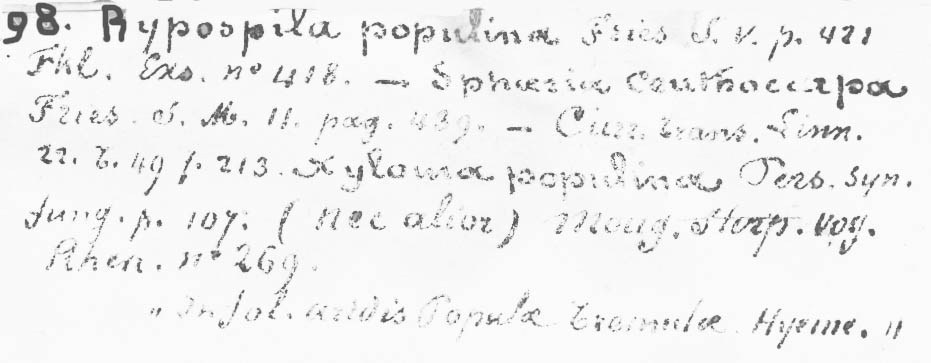 98. Hypospila populina Fries S. v. p. 421
Fkl. Exs. nº 418. — Sphæria Ceuthocarpa
Fries. S. M. II. pag. 439. — Curr. trans. Linn.
22. t. 49 f. 213. Xyloma populina Pers. Syn.
fung. p. 107. ( nec alior ) Moug. Stirp. Vog.
Rhen. nº 269.
" In fol. aridis Populæ tremulæ. Hyeme. "